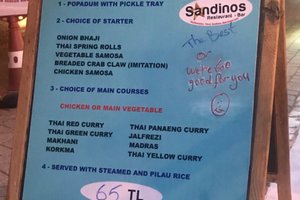 1 - POPADUM WITH PICKLE TRAY
2 - CHOICE OF STARTER
ONION BNAJI
THAI SPRING ROLLS
VEGETABLE SAMOSA
BREADED CRAB CLAW (IMITATION)
CHICKEN SAMOSA
3 - CHOICE OF MAIN COURSES
CHICKEN OR MAIN VEGETABLE
THAI RED CURRY
THAI GREEN CURRY
MAKHANI
KORKMA
THAI PANAENG CURRY
JALFREZI
MADRAS
THAI YELLOW CURRY
4 - SERVED WITH STEAMED AND PILAU RICE
65 TL
Sandinos
Restaurant - Bar
The Best
or
we're too
good for you